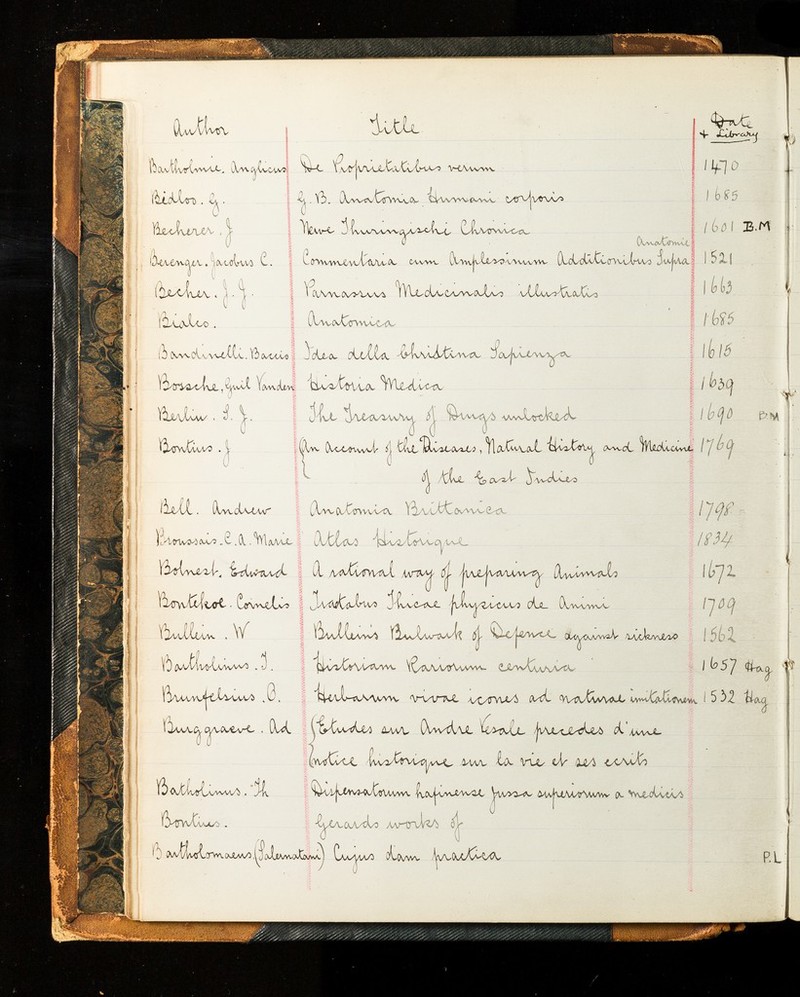 Author Title Date + Library
Bartholmie. Anglicus De Proprietatibus rerum 1470
Bidloo. G. G. B. Anatomia Humani corporis 1685
Becherer. J Newe Thuringischi Chronica 1601 B.M
Anatomie
Berenger. Jacobus C. Commentaria cum Amplessinum Additionibus Supra 1521
Becher. J. J. Parnassus Medicinalis illustratis 1663
Bialeo. Anatomica 1685
Bandinelli. Baccio Idea della christina Sapienza 1615
Bossche, Guil Vanden Historia Medica 1639
Berlin. I. J. The Treasury of Drugs unlocked 1690 BM
Bontius. J An Account of the Diseases, Natural History and Medicine 1769
of the East Indies
Bell. Andrew Anatomia Brittanica 1798
Broussais. C. A. Marie Atlas Historique 1834
Bolnest. Edward A rational way of preparing Animals 1672
Bontekoe. Cornelis Tractabus Thicae physicus de Animi 1709
Bullein. W Bulleins Bulwark of Defence against sickness 1562
Bartholinus. T. Historiam Rariorum centuria 1657 Hag
Brunfelsius. O. Herbarum vivae icones ad naturae imitationem 1532 Hag
Burggraeve. Ad (Etudes sur Andre Vesale precedes d'une
(notice historique sur la vie et ses ecrits
Batholinus. Th Dispensatorum hafinense Jussa superiorum a medicis
Bontius. Gerards works of
Bartholomaeus (Salernatani) Cujus dam practica P.L